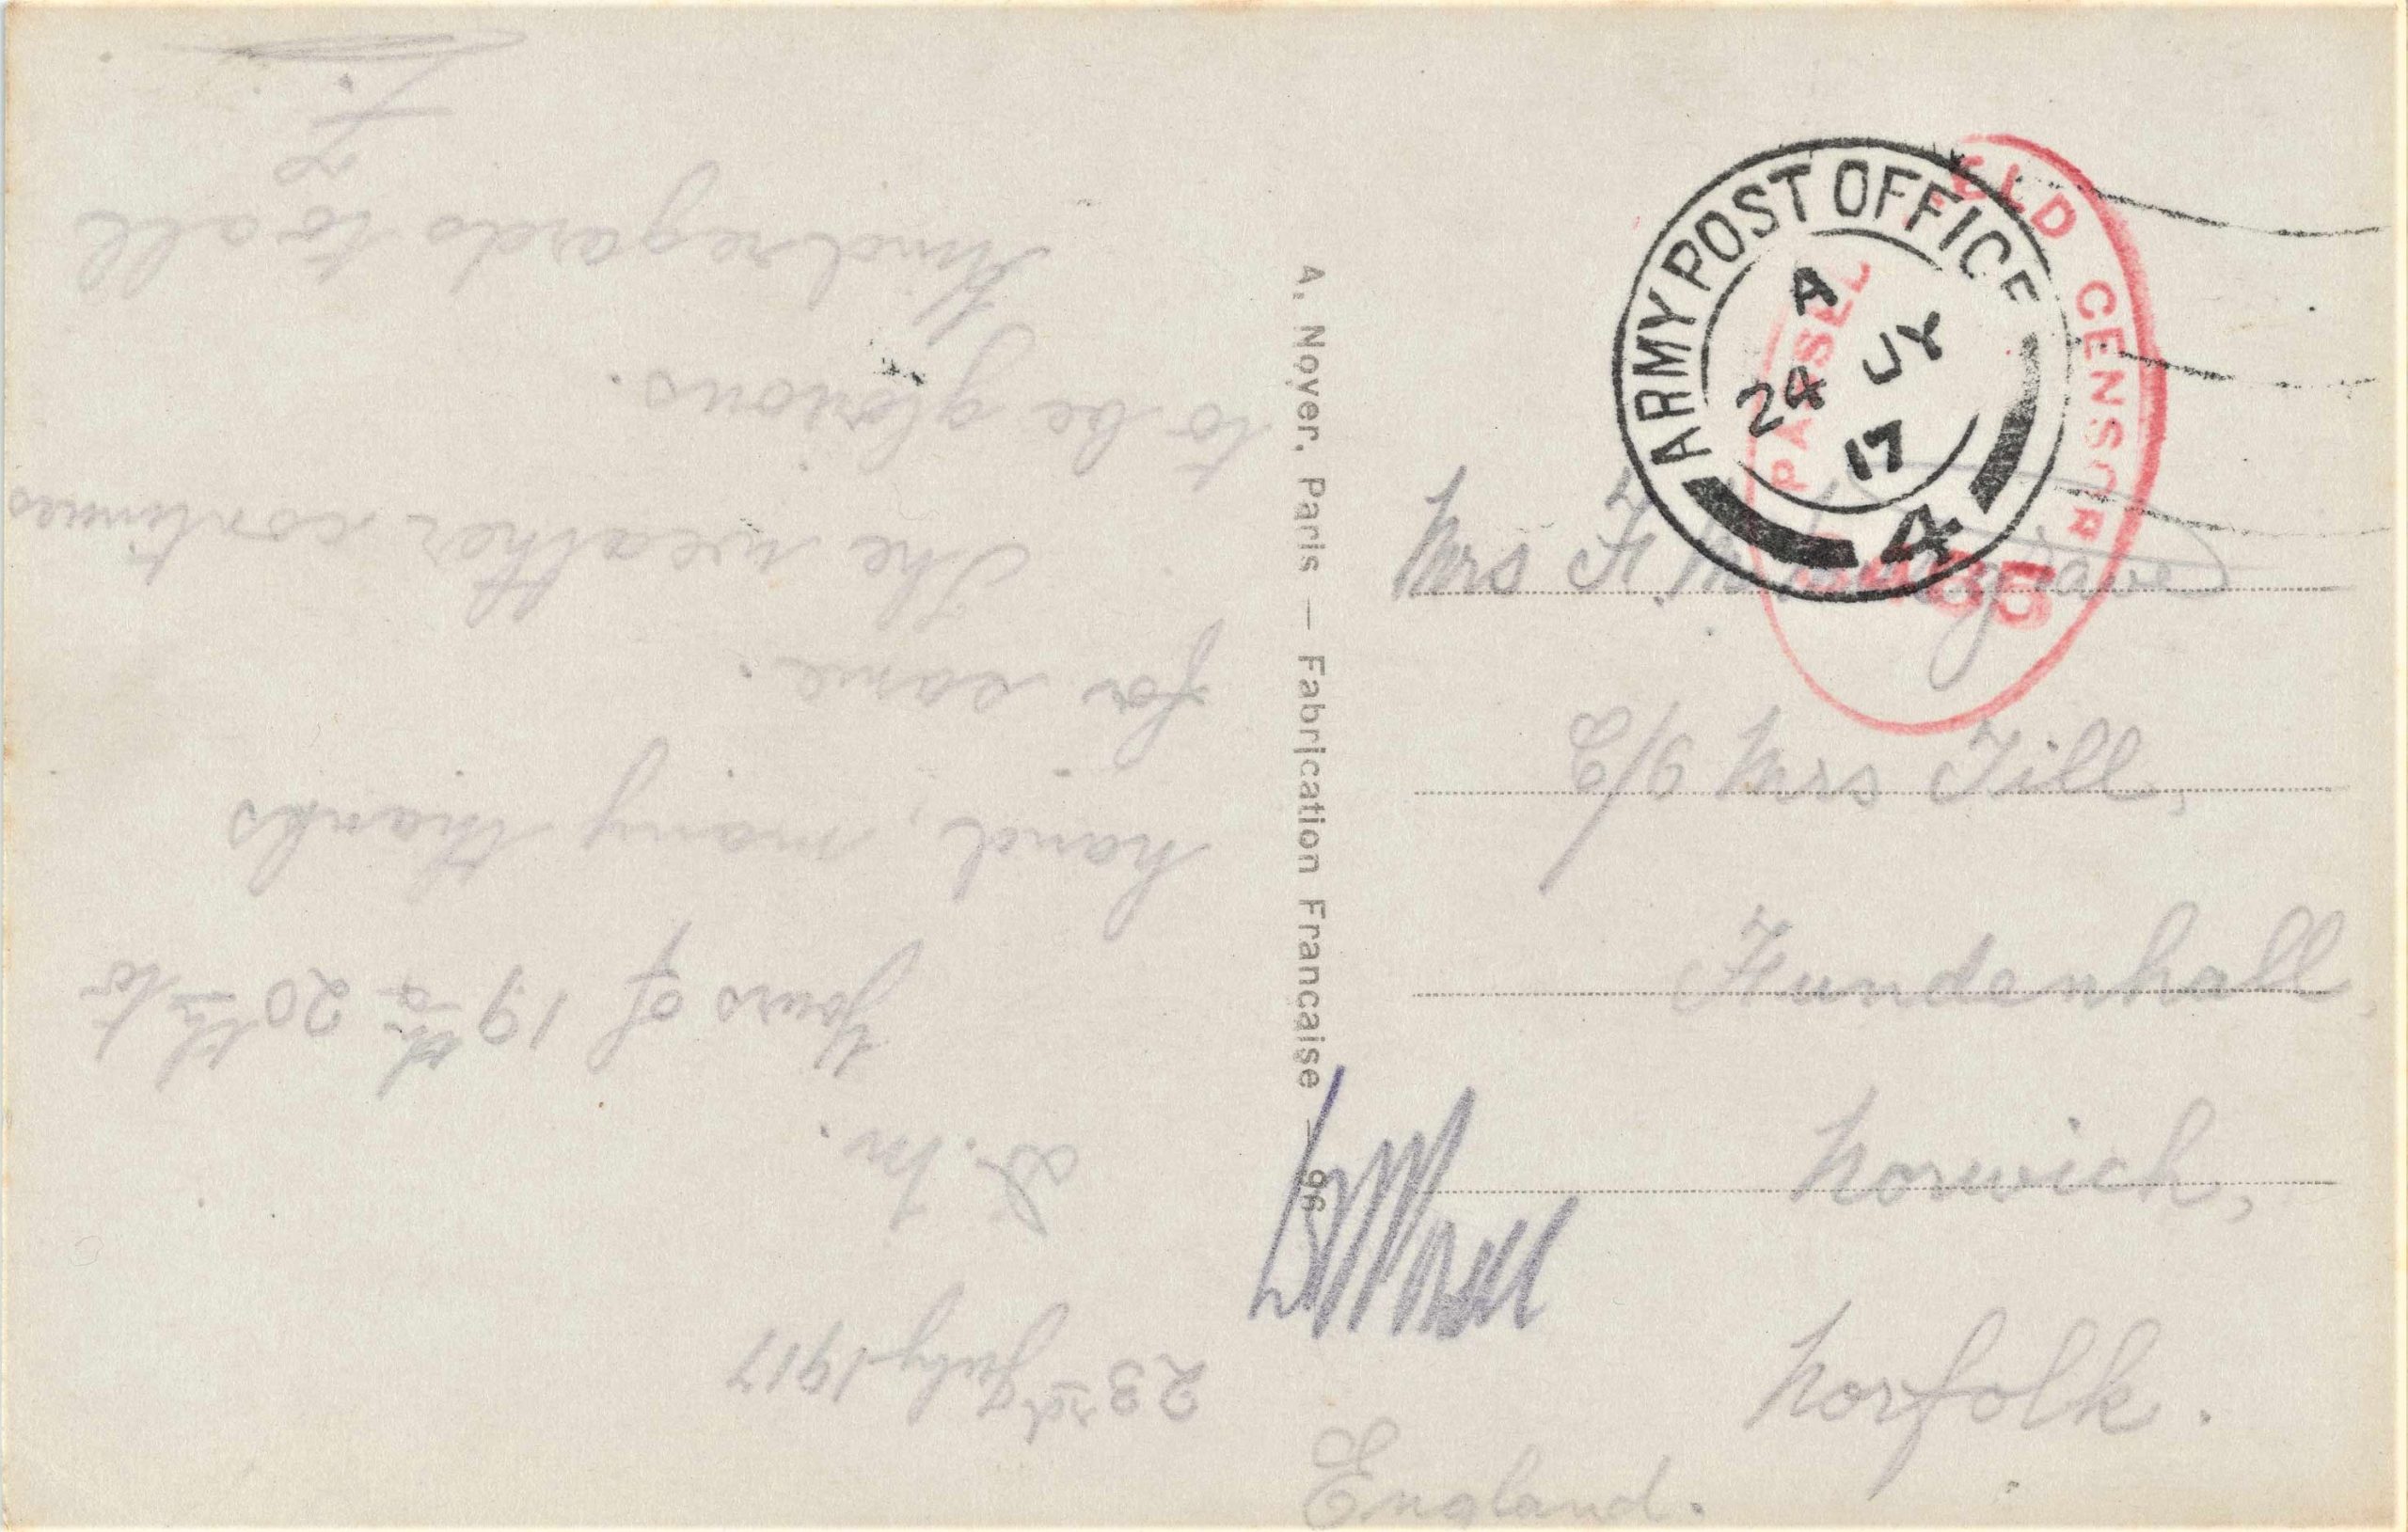 23rd July 1917
D.M.
Yours of 19th & 20th to
hand, many thanks
for same.
The weather continues
to be glorious.
Kind regards to all
F.
A. Noyer, Paris — Fabrication Française — 96
ARMY POST OFFICE
A
24 JY
17
4
FIELD CENSOR
PASSED
Mrs F. M.
C/o Mrs Till,
Fundenhall,
Norwich,
Norfolk.
England.